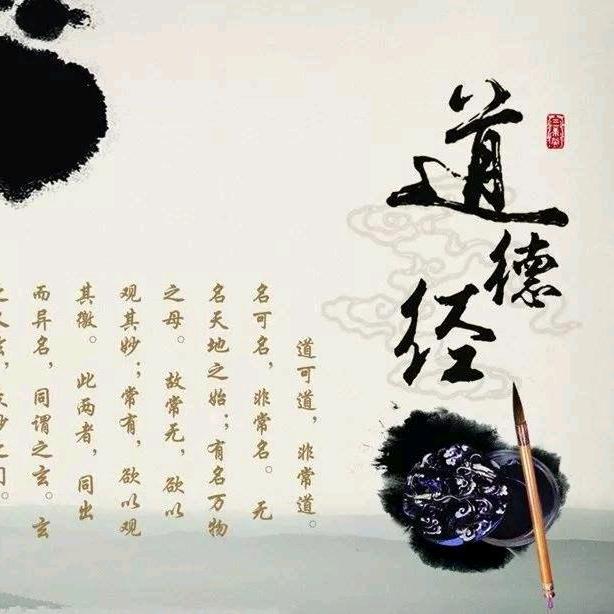 道德经
道可道，非常道。
名可名，非常名。 无
名天地之始；有名万物
之母。 故常无，欲以
观其妙；常有，欲以观
其徼。 此两者，同出
而异名，同谓之玄。玄
之又玄，众妙之门。